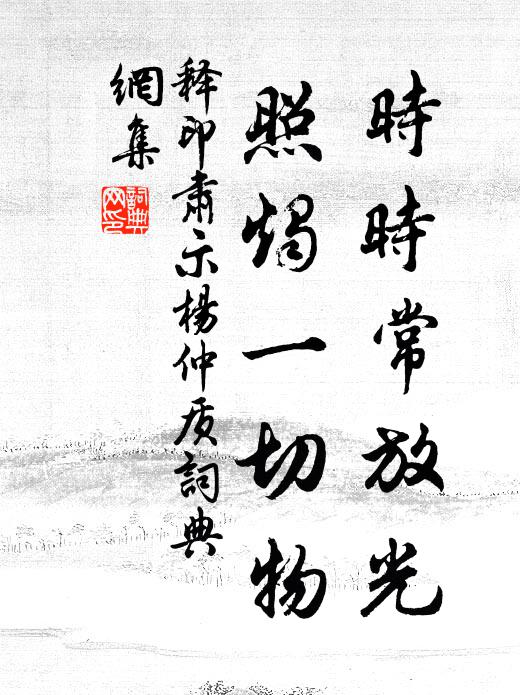 時時常放光
照燭一切物
释印肅示楊仲质詞典
網集
詞典网印